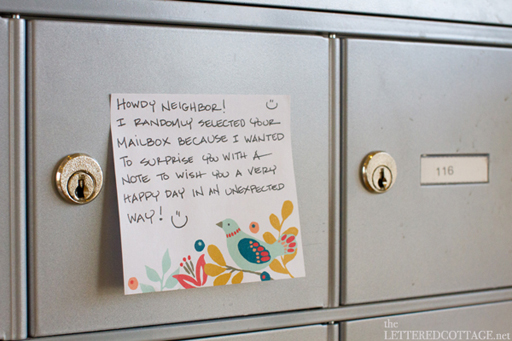 HOWDY NEIGHBOR! ☺
I RANDOMLY SELECTED YOUR
MAILBOX BECAUSE I WANTED
TO SURPRISE YOU WITH A
NOTE TO WISH YOU A VERY
HAPPY DAY IN AN UNEXPECTED
WAY! ☺
116
the
LETTEREDCOTTAGE.net